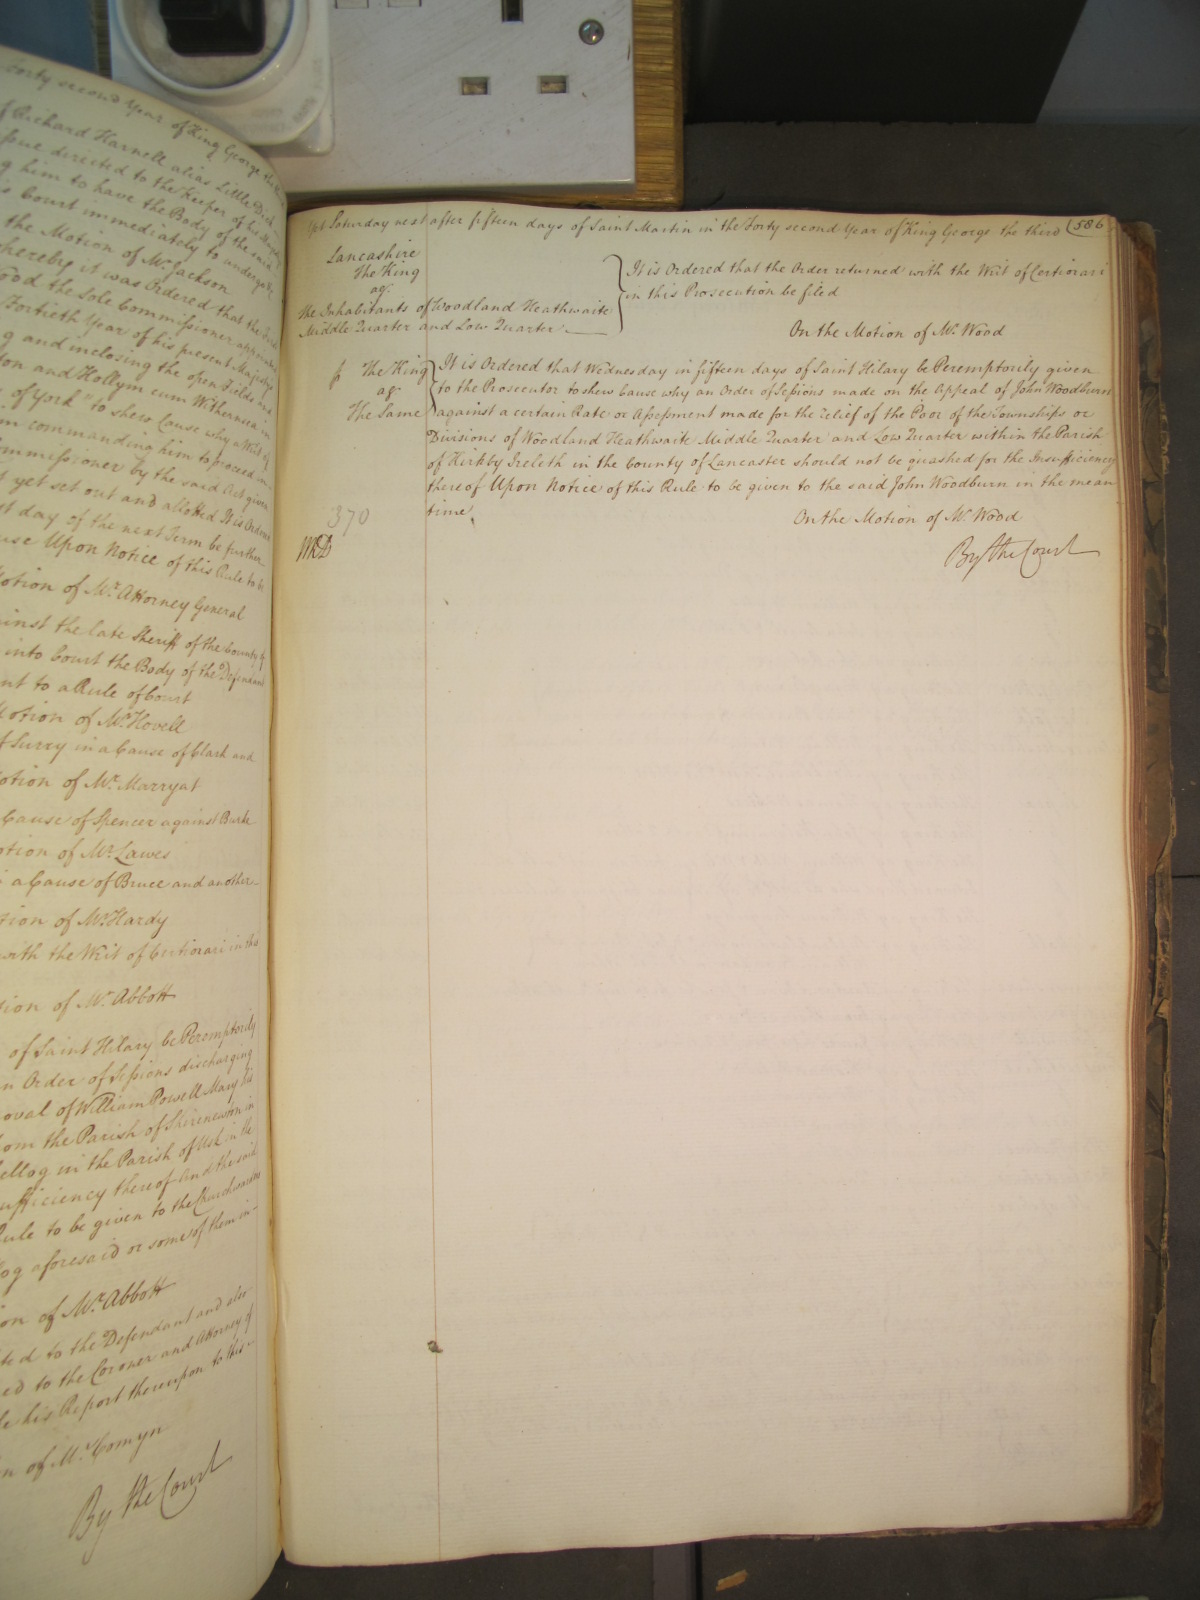 forty second Year of King George the
f Richard Harnell alias Little Dick
ssue directed to the Keeper of his
g him to have the Body of the said
s Court immediately to undergo
the Motion of Mr. Jackson
hereby it was Ordered that the
ood the Sole Commissioner appointed
Fortieth Year of his present Majesty
g and inclosing the open Fields and
ton and Hollym cum Withernsea in
of York " to shew Cause why a Writ of
commanding him to proceed
ommissioner by the said Act given
t yet set out and allotted It is Ordered
st day of the next Term be further
use Upon Notice of this Rule to be
otion of Mr. Attorney General
ainst the late Sheriff of the County of
into Court the Body of the Defendant
nt to a Rule of Court
otion of Mr. Hovell
f Surry in a Cause of Clark and
otion of Mr. Marryat
Cause of Spencer against Burke
otion of Mr. Lawes
a Cause of Bruce and another
tion of Mr. Hardy
with the Writ of Certiorari in this
tion of Mr. Abbott
of Saint Hilary be Peremptorily
n Order of Sessions discharging
oval of William Powell Mary his
from the Parish of Shirenewton in
ellog in the Parish of Usk in the
ufficiency thereof And the said
Rule to be given to the Churchwardens
og aforesaid or some of them in
on of Mr. Abbott
ted to the Defendant and also
ed to the Coroner and Attorney of
his Report thereupon to this
n of Mr. Comyn
By the Court
Yet Saturday next after fifteen days of Saint Martin in the Forty second Year of King George the third 586
Lancashire
The King
agt.
the Inhabitants of Woodland Heathwaite
Middle Quarter and Low Quarter
It is Ordered that the Order returned with the Writ of Certiorari
in this Prosecution be filed
On the Motion of Mr. Wood
The King
agt.
The Same
It is Ordered that Wednesday in fifteen days of Saint Hilary be Peremptorily given
to the Prosecutor to shew Cause why an Order of Sessions made on the Appeal of John Woodburn
against a certain Rate or Assessment made for the relief of the Poor of the Townships or
Divisions of Woodland Heathwaite Middle Quarter and Low Quarter within the Parish
of Kirkby Ireleth in the County of Lancaster should not be quashed for the Insufficiency
thereof Upon Notice of this Rule to be given to the said John Woodburn in the mean
time
On the Motion of Mr. Wood
370
By the Court